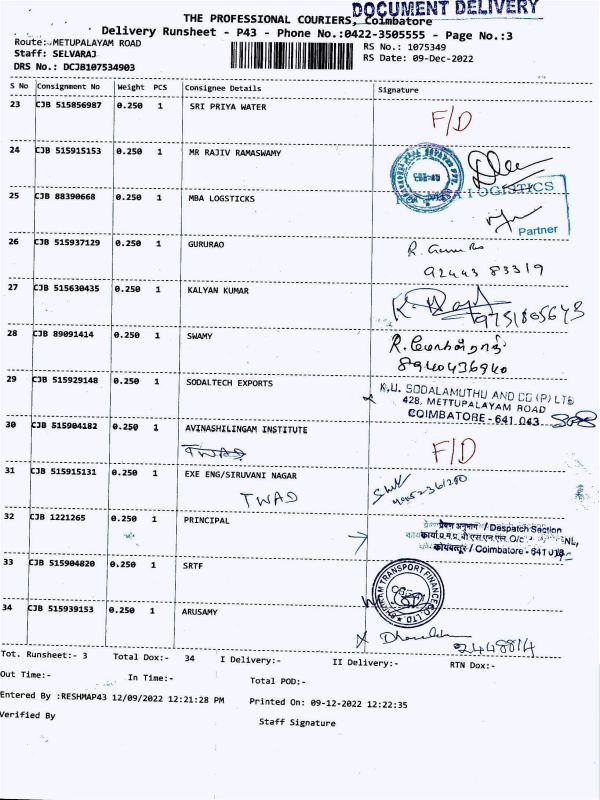 DOCUMENT DELIVERY
THE PROFESSIONAL COURIERS, Coimbatore
Delivery Runsheet - P43 - Phone No.:0422-3505555 - Page No.:3
Route: METUPALAYAM ROAD
RS No.: 1075349
Staff: SELVARAJ
RS Date: 09-Dec-2022
DRS No.: DCJB107534903
S No Consignment No Weight PCS Consignee Details Signature
23 CJB 515856987 0.250 1 SRI PRIYA WATER F/D
24 CJB 515915153 0.250 1 MR RAJIV RAMASWAMY
25 CJB 88390668 0.250 1 MBA LOGSTICKS LOGISTICS
Partner
26 CJB 515937129 0.250 1 GURURAO R.
92443 83319
27 CJB 515630435 0.250 1 KALYAN KUMAR
28 CJB 89091414 0.250 1 SWAMY
8940436940
29 CJB 515929148 0.250 1 SODALTECH EXPORTS
K.U. SODALAMUTHU AND CO (P) LTD
428, METTUPALAYAM ROAD
COIMBATORE - 641 043
30 CJB 515904182 0.250 1 AVINASHILINGAM INSTITUTE F/D
TWAD
31 CJB 515915131 0.250 1 EXE ENG/SIRUVANI NAGAR
TWAD
32 CJB 1221265 0.250 1 PRINCIPAL
प्रेषण अनुभाग / Despatch Section
कोयंबत्तूर / Coimbatore - 641
33 CJB 515904820 0.250 1 SRTF
TRANSPORT FINANCE CO. LTD.
34 CJB 515939153 0.250 1 ARUSAMY
X
Tot. Runsheet:- 3 Total Dox:- 34 I Delivery:- II Delivery:- RTN Dox:-
Out Time:- In Time:- Total POD:-
Entered By :RESHMAP43 12/09/2022 12:21:28 PM Printed On: 09-12-2022 12:22:35
Verified By Staff Signature